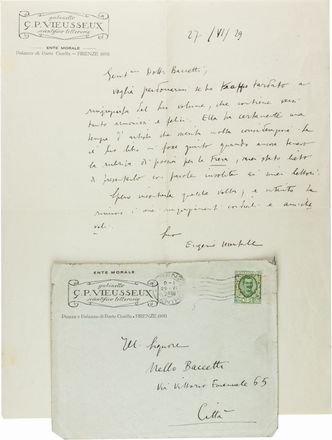 gabinetto
G. P. VIEUSSEUX
scientifico letterario
ENTE MORALE
Palazzo di Parte Guelfa - FIRENZE (101)
27-/VI/29
Gent.mo Dott. Baccetti,
voglia perdonarmi se ho troppo tardato a
ringraziarla del suo volume, che contiene versi
tanto armoniosi e felici. Ella ha certamente una
tempra d'artista che merita nella contemporanea. Se
il suo libro mi fosse giunto quando ancora tenevo
la rubrica di poesia per la Fiera, sarei stato lieto
di presentarlo con parole invoglianti ai miei lettori.
Spero incontrarla qualche volta; e intanto la
rinnovo i miei ringraziamenti cordiali e amiche
voli.
Suo
Eugenio Montale
ENTE MORALE
gabinetto
G. P. VIEUSSEUX
scientifico letterario
Piazza e Palazzo di Parte Guelfa - FIRENZE (101)
Il Signore
Nello Baccetti
Via Vittorio Emanuele 65
Città